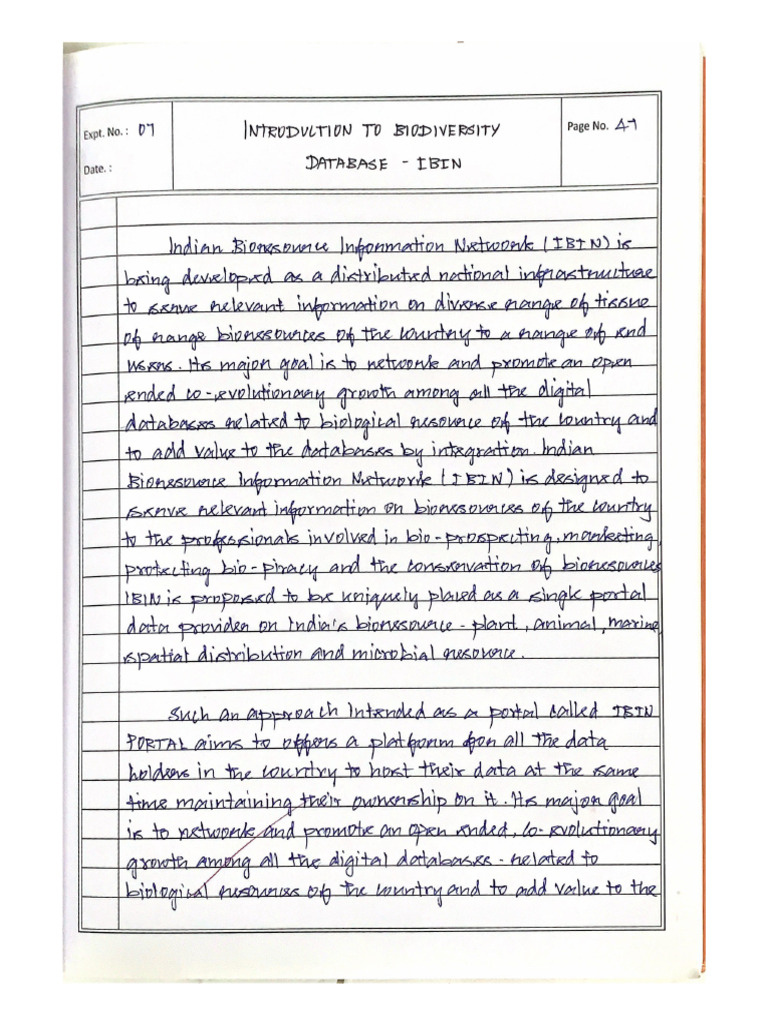 Expt. No. : 07
INTRODUCTION TO BIODIVERSITY
Page No. 47
DATABASE - IBIN
Date. :
Indian Bioresource Information Network (IBIN) is
being developed as a distributed national infrastructure
to serve relevant information on diverse range of tissue
of range bioresources of the country to a range of end
users. Its major goal is to network and promote an open
ended co-evolutionary growth among all the digital
databases related to biological resource of the country and
to add value to the databases by integration. Indian
Bioresource Information Network (IBIN) is designed to
serve relevant information on bioresources of the country
to the professionals involved in bio-prospecting, marketing,
protecting bio-piracy and the conservation of bioresources
IBIN is proposed to be uniquely placed as a single portal
data provider on India's bioresource - plant, animal, marine,
spatial distribution and microbial resource.
Such an approach Intended as a portal called IBIN
PORTAL aims to offers a platform for all the data
holders in the country to host their data at the same
time maintaining their ownership on it. Its major goal
is to network and promote an open ended, co-evolutionary
growth among all the digital databases - related to
biological resources of the country and to add value to the